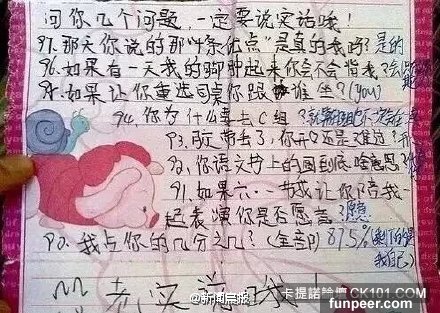 问你几个问题,一定要说实话哦!
97.那天你说的那"十条优点"是真的我吗?是的
96.如果有一天我的脚肿起来你会不会背我?会
95.如果让你重选同桌你跟谁坐?(you)
94.你为什么要去C组?
93.胶带丢了,你开心还是难过?
92.你语文书上的画到底啥意思?
91.如果六·一节我让你陪我一
起表演你是否愿意?愿意
90.我占你的几分之几?(全部)87.5%(剩下的是我自己)
老实说哦
@新闻晨报
卡提諾論壇 CK101.COM
funpeer.com